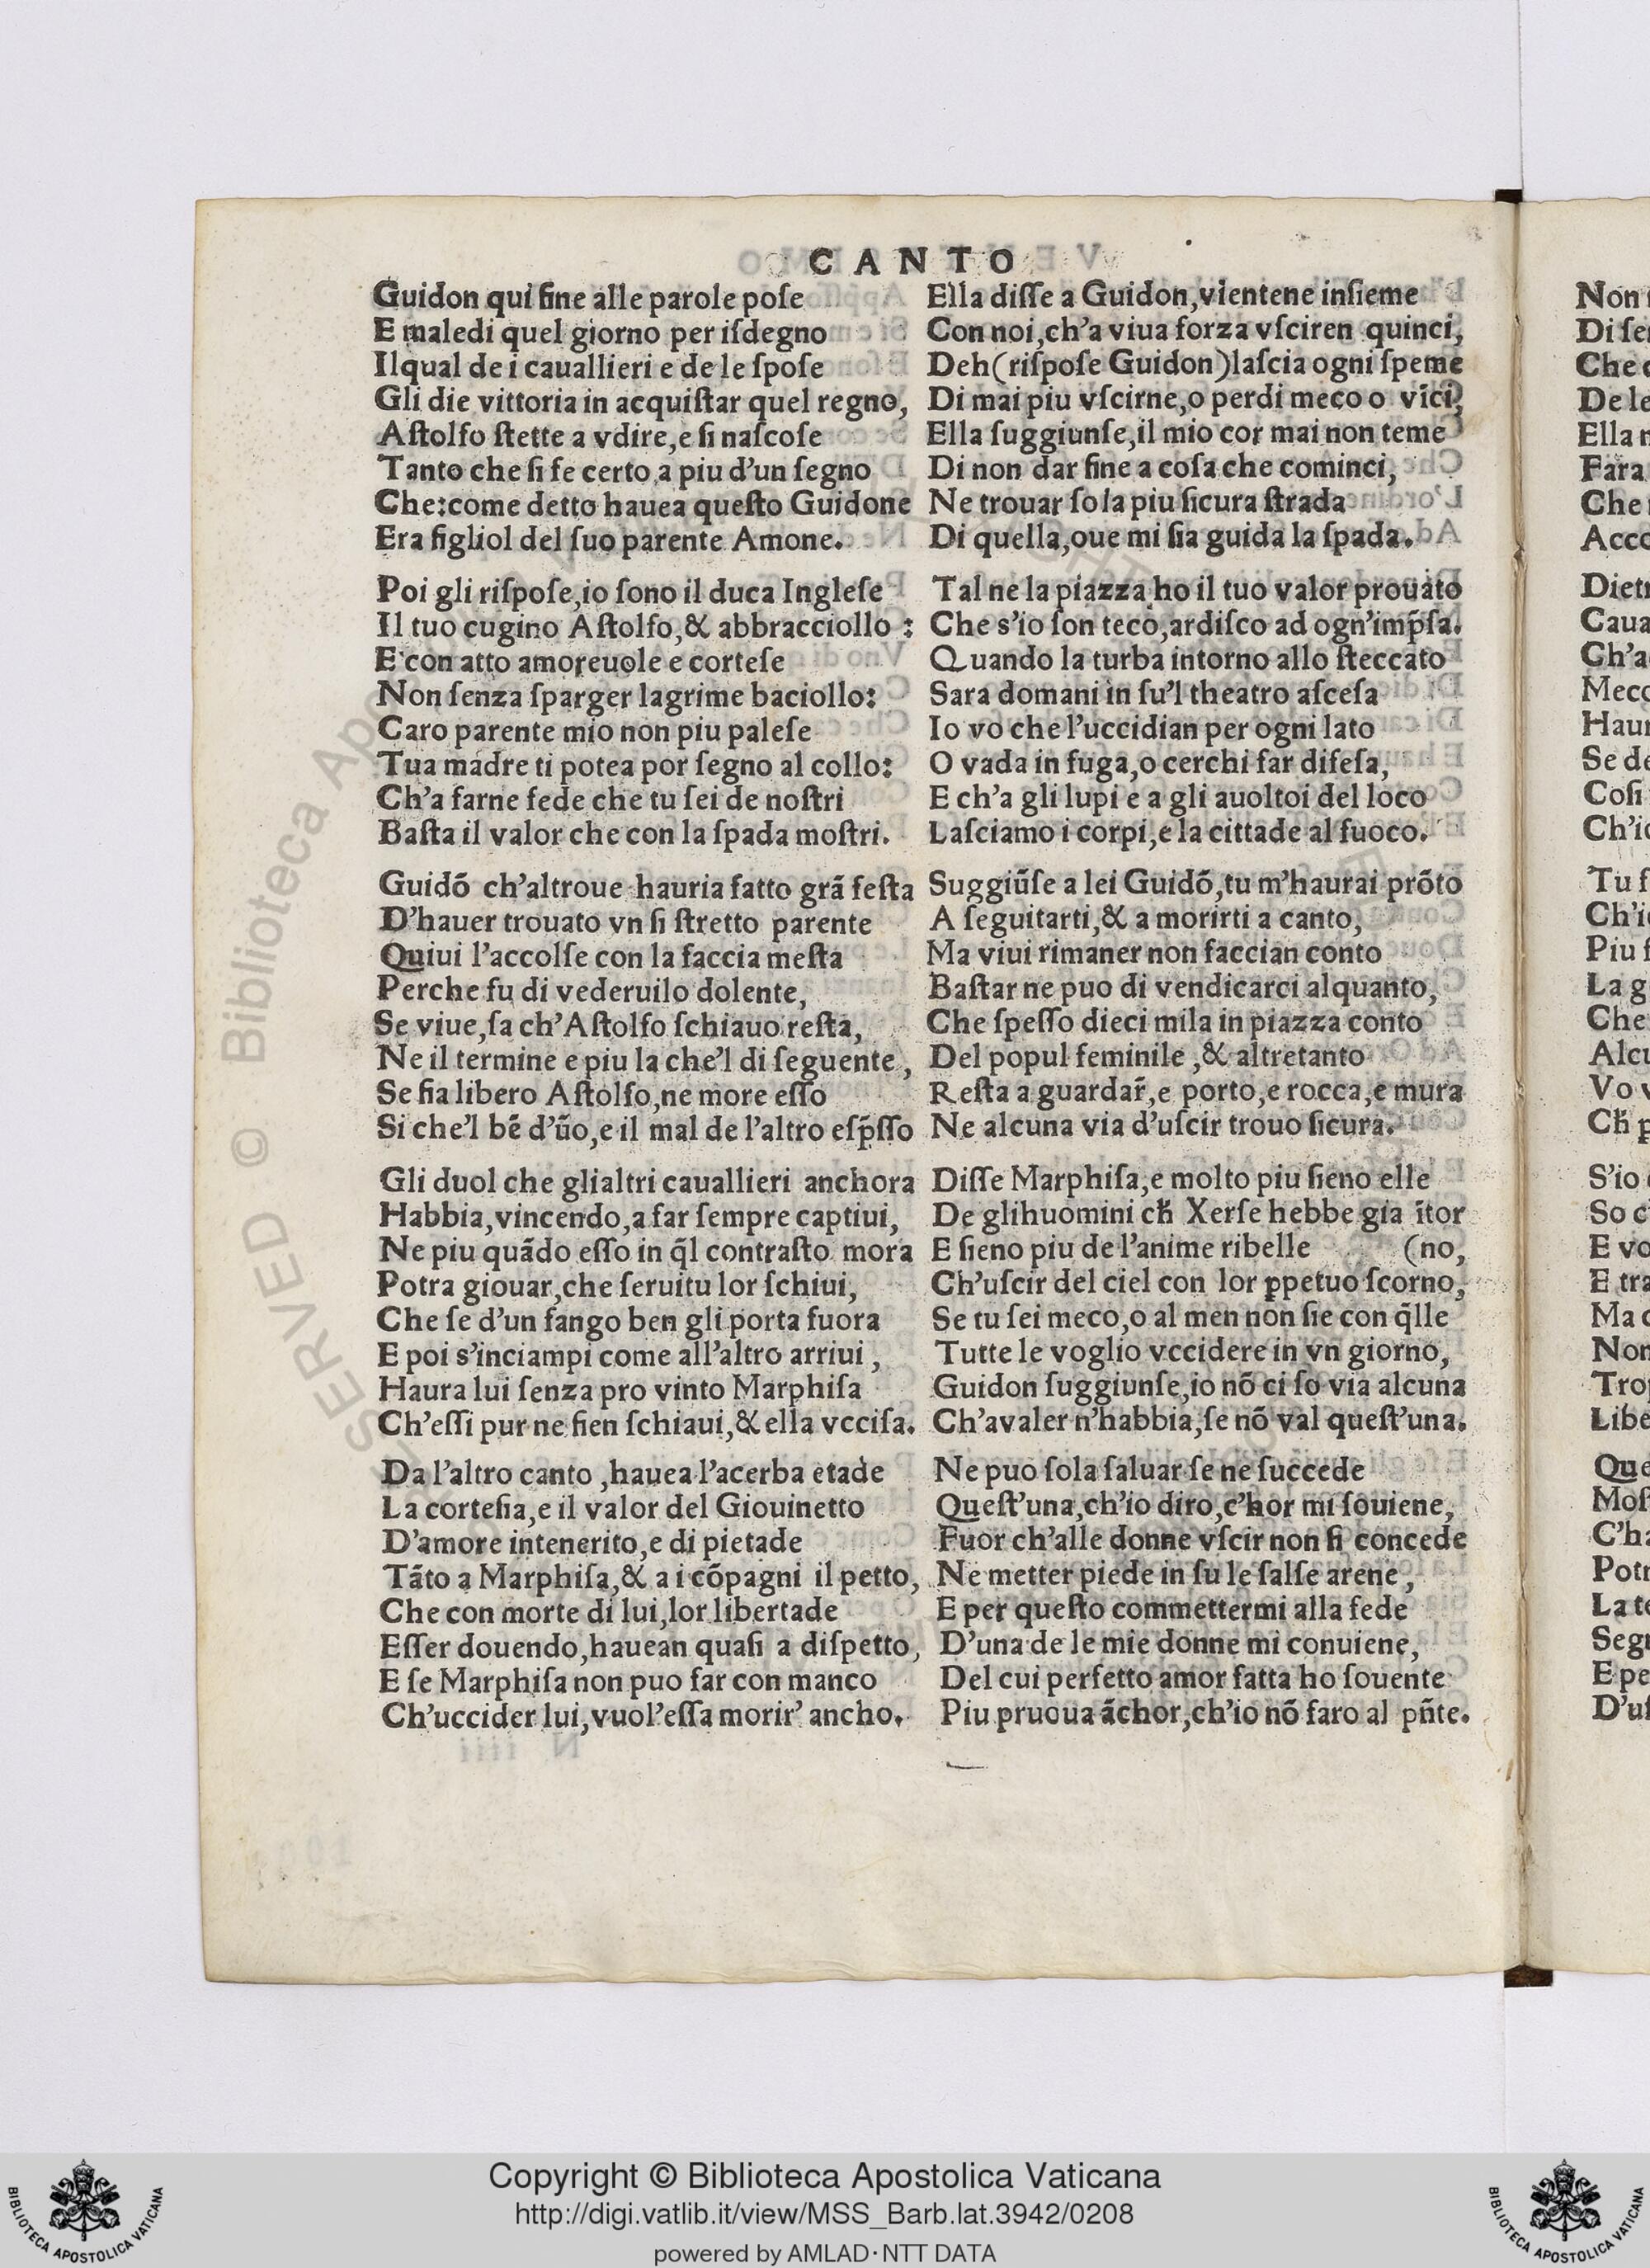 CANTO
Guidon qui fine alle parole poſe
E maledi quel giorno per iſdegno
Ilqual de i cauallieri e de le ſpoſe
Gli die vittoria in acquiſtar quel regno,
Aſtolfo ſtette a vdire,e ſi naſcoſe
Tanto che ſi fe certo a piu d'un ſegno
Che:come detto hauea queſto Guidone
Era figliol del ſuo parente Amone.
Poi gli riſpoſe,io ſono il duca Ingleſe
Il tuo cugino Aſtolfo,& abbracciollo :
E con atto amoreuole e corteſe
Non ſenza ſparger lagrime baciollo:
Caro parente mio non piu paleſe
Tua madre ti potea por ſegno al collo:
Ch'a farne fede che tu ſei de noſtri
Baſta il valor che con la ſpada moſtri.
Guidō ch'altroue hauria fatto grā feſta
D'hauer trouato vn ſi ſtretto parente
Quiui l'accolſe con la faccia meſta
Perche fu di vederuilo dolente,
Se viue,ſa ch'Aſtolfo ſchiauo reſta,
Ne il termine e piu la che'l di ſeguente,
Se fia libero Aſtolfo,ne more eſſo
Si che'l bē d'ūo,e il mal de l'altro eſp̄ſſo
Gli duol che glialtri cauallieri anchora
Habbia,vincendo,a far ſempre captiui,
Ne piu quādo eſſo in q̄l contraſto mora
Potra giouar,che ſeruitu lor ſchiui,
Che ſe d'un fango ben gli porta fuora
E poi s'inciampi come all'altro arriui,
Haura lui ſenza pro vinto Marphiſa
Ch'eſſi pur ne fien ſchiaui,& ella vcciſa.
Da l'altro canto ,hauea l'acerba etade
La corteſia,e il valor del Giouinetto
D'amore intenerito,e di pietade
Tāto a Marphiſa,& a i cōpagni il petto,
Che con morte di lui,lor libertade
Eſſer douendo,hauean quaſi a diſpetto,
E ſe Marphiſa non puo far con manco
Ch'uccider lui,vuol'eſſa morir' ancho.
Ella diſſe a Guidon,vientene inſieme
Con noi,ch'a viua forza vſciren quinci,
Deh(riſpoſe Guidon)laſcia ogni ſpeme
Di mai piu vſcirne,o perdi meco o vīci,
Ella ſuggiunſe,il mio cor mai non teme
Di non dar fine a coſa che cominci,
Ne trouar ſo la piu ſicura ſtrada
Di quella,oue mi ſia guida la ſpada.
Tal ne la piazza ho il tuo valor prouato
Che s'io ſon teco,ardiſco ad ogn'imp̄ſa.
Quando la turba intorno allo ſteccato
Sara domani in ſu'l theatro aſceſa
Io vo che l'uccidian per ogni lato
O vada in fuga,o cerchi far difeſa,
E ch'a gli lupi e a gli auoltoi del loco
Laſciamo i corpi,e la cittade al fuoco.
Suggiūſe a lei Guidō,tu m'haurai prōto
A ſeguitarti,& a morirti a canto,
Ma viui rimaner non faccian conto
Baſtar ne puo di vendicarci alquanto,
Che ſpeſſo dieci mila in piazza conto
Del popul feminile ,& altretanto
Reſta a guardar̄,e porto,e rocca,e mura
Ne alcuna via d'uſcir trouo ſicura.
Diſſe Marphiſa,e molto piu ſieno elle
De glihuomini ch̄ Xerſe hebbe gia ītor
E ſieno piu de l'anime ribelle (no,
Ch'uſcir del ciel con lor ꝑpetuo ſcorno,
Se tu ſei meco,o al men non ſie con q̄lle
Tutte le voglio vccidere in vn giorno,
Guidon ſuggiunſe,io nō ci ſo via alcuna
Ch'avaler n'habbia,ſe nō val queſt'una.
Ne puo ſola ſaluar ſe ne ſuccede
Queſt'una,ch'io diro,c'hor mi ſouiene,
Fuor ch'alle donne vſcir non ſi concede
Ne metter piede in ſu le ſalſe arene,
E per queſto commettermi alla fede
D'una de le mie donne mi conuiene,
Del cui perfetto amor fatta ho ſouente
Piu pruoua āchor,ch'io nō faro al pn̄te.
© Biblioteca
Copyright © Biblioteca Apostolica Vaticana
http://digi.vatlib.it/view/MSS_Barb.lat.3942/0208
powered by AMLAD·NTT DATA
BIBLIOTECA APOSTOLICA VATICANA
BIBLIOTECA APOSTOLICA VATICANA